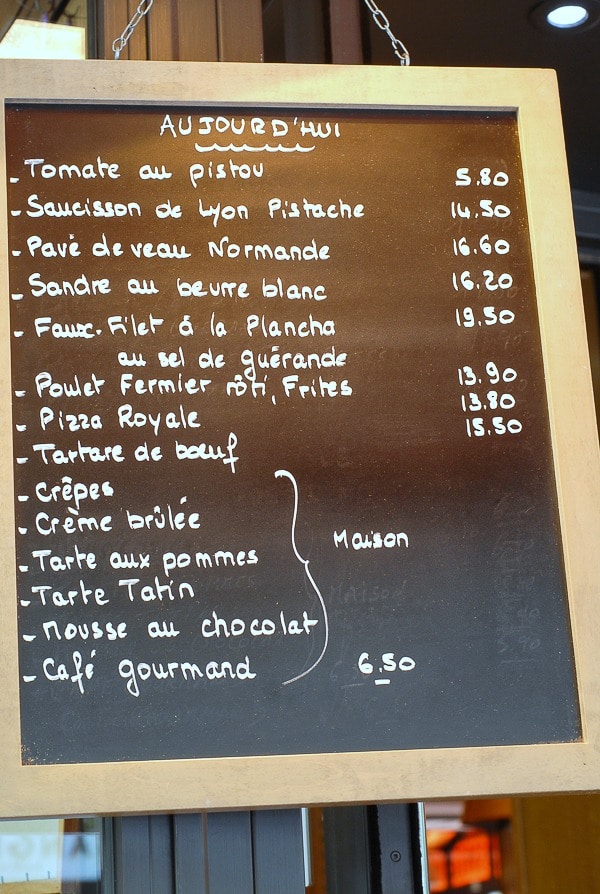 AUJOURD'HUI
- Tomate au pistou 5.80
- Saucisson de Lyon Pistache 14.50
- Pavé de veau Normande 16.60
- Sandre au beurre blanc 16.20
- Faux-Filet à la Plancha 19.50
au sel de guérande
- Poulet Fermier rôti, Frites 13.90
- Pizza Royale 13.80
- Tartare de bœuf 15.50
- Crêpes
- Crème brûlée
Maison
- Tarte aux pommes
- Tarte Tatin
- Mousse au chocolat
- Café gourmand 6.50